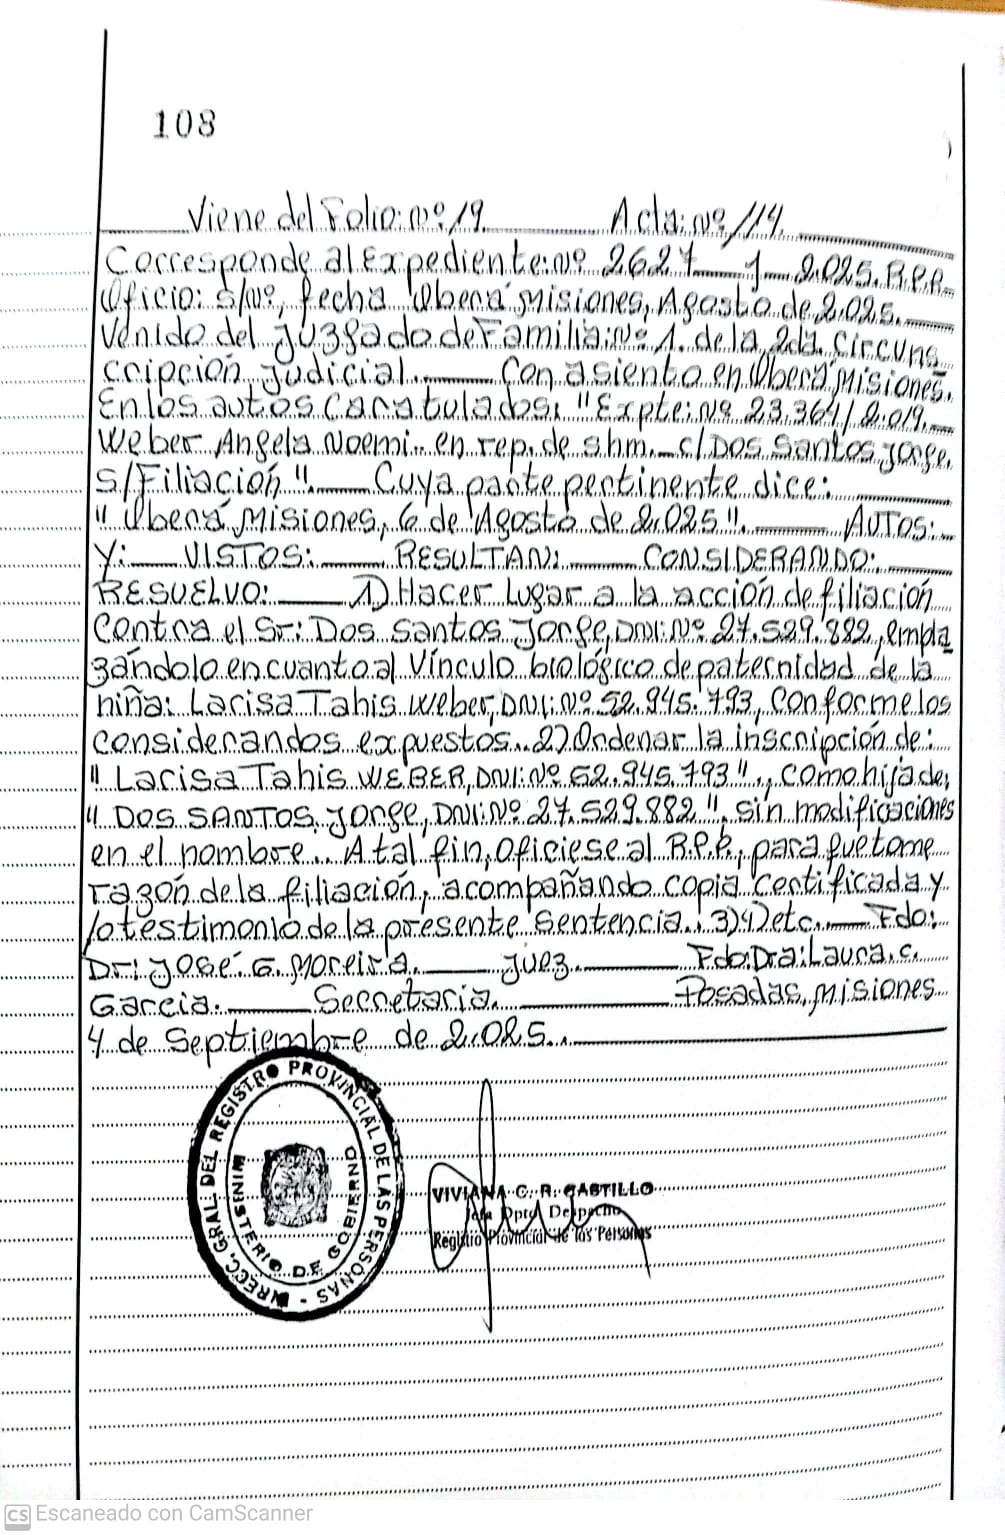 108
Viene del Folio: Nº 19. Acta: Nº 114.
Corresponde al Expediente: Nº 2627 J 2.025. R.P.P.
Oficio: S/Nº, fecha Oberá Misiones, Agosto de 2.025.
Venido del Juzgado de Familia: Nº 1. de la 2da. Circuns
cripción Judicial. Con asiento en Oberá Misiones.
En los autos Caratulados: "Expte: Nº 23.364/2.019.
Weber Angela Noemi.. en rep. de s.hm. c/Dos Santos Jorge.
s/Filiación". Cuya parte pertinente dice:
"Oberá, Misiones, 6 de Agosto de 2.025". AUTOS:
Y: VISTOS: RESULTAN: CONSIDERANDO:
RESUELVO: 1) Hacer Lugar a la acción de filiación
Contra el Sr: Dos Santos Jorge, DNI: Nº 27.529.882, empla
zándolo en cuanto al Vínculo biológico de paternidad de la
niña: Larisa Tahis Weber, DNI: Nº 52.945.793, Conforme los
considerandos expuestos.. 2) Ordenar la inscripción de:
"Larisa Tahis WEBER, DNI: Nº 52.945.793"., como hija de:
"DOS SANTOS, Jorge, DNI: Nº 27.529.882". sin modificaciones
en el nombre... A tal fin, oficiese al R.P.P., para que tome
razón de la filiación, acompañando copia Certificada y
/o testimonio de la presente Sentencia. 3) 4) etc. Fdo:
Dr: José. G. Moreira. Juez. Fdo: Dra: Laura. C.
Garcia. Secretaria. Posadas, Misiones
4 de Septiembre de 2.025..
DIRECC. GRAL. DEL REGISTRO PROVINCIAL DE LAS PERSONAS -
MINISTERIO DE GOBIERNO
VIVIANA C. R. CASTILLO
Jefa Dpto. Despacho
Registro Provincial de las Personas
CS Escaneado con CamScanner